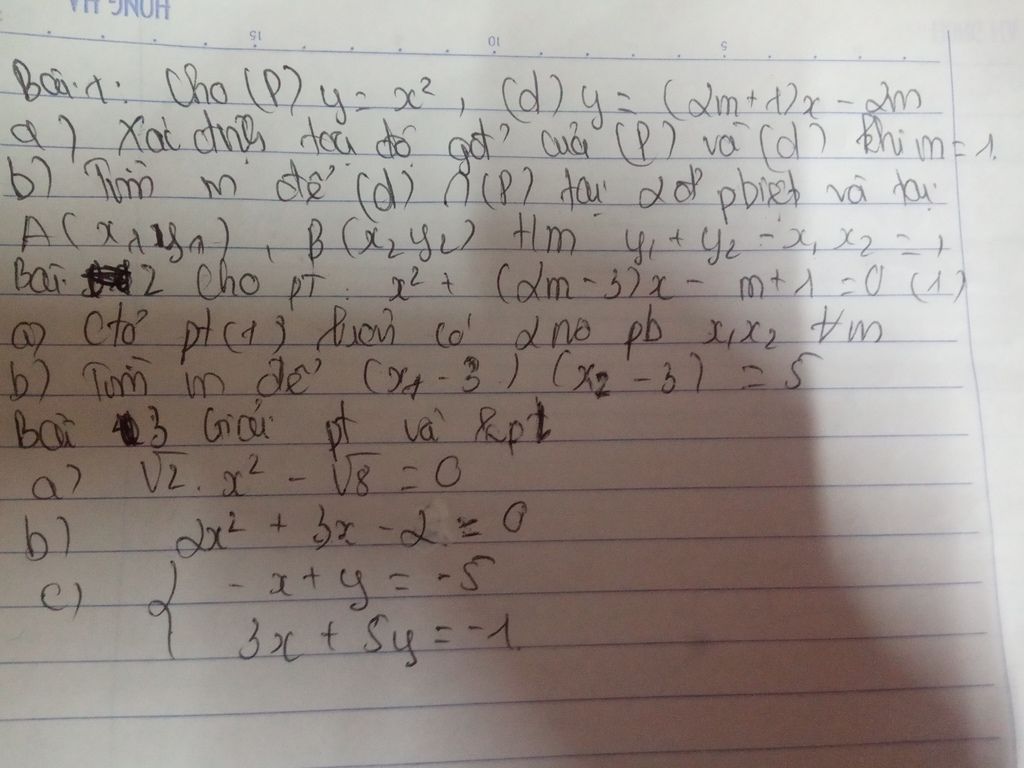 HONG HA
15 10 5
Bài 1: Cho (P) y = x², (d) y = (2m+1)x - 2m
a) Xác định toạ độ gđ' của (P) và (d) khi m=1.
b) Tìm m để (d) ∩ (P) tại 2đ pbiệt và tại
A(x₁y₁), B(x₂y₂) t/m y₁ + y₂ - x₁x₂ = 1
Bài 2 Cho pt: x² + (2m-3)x - m+1 = 0 (1)
a) Ctỏ pt(1) luôn có 2 no pb x₁x₂ ∀m
b) Tìm m để (x₁ - 3) (x₂ - 3) = 5
Bài 3 Giải pt và hpt
a) √2. x² - √8 = 0
b) 2x² + 3x - 2 = 0
c) { - x + y = -5
3x + 5y = -1.